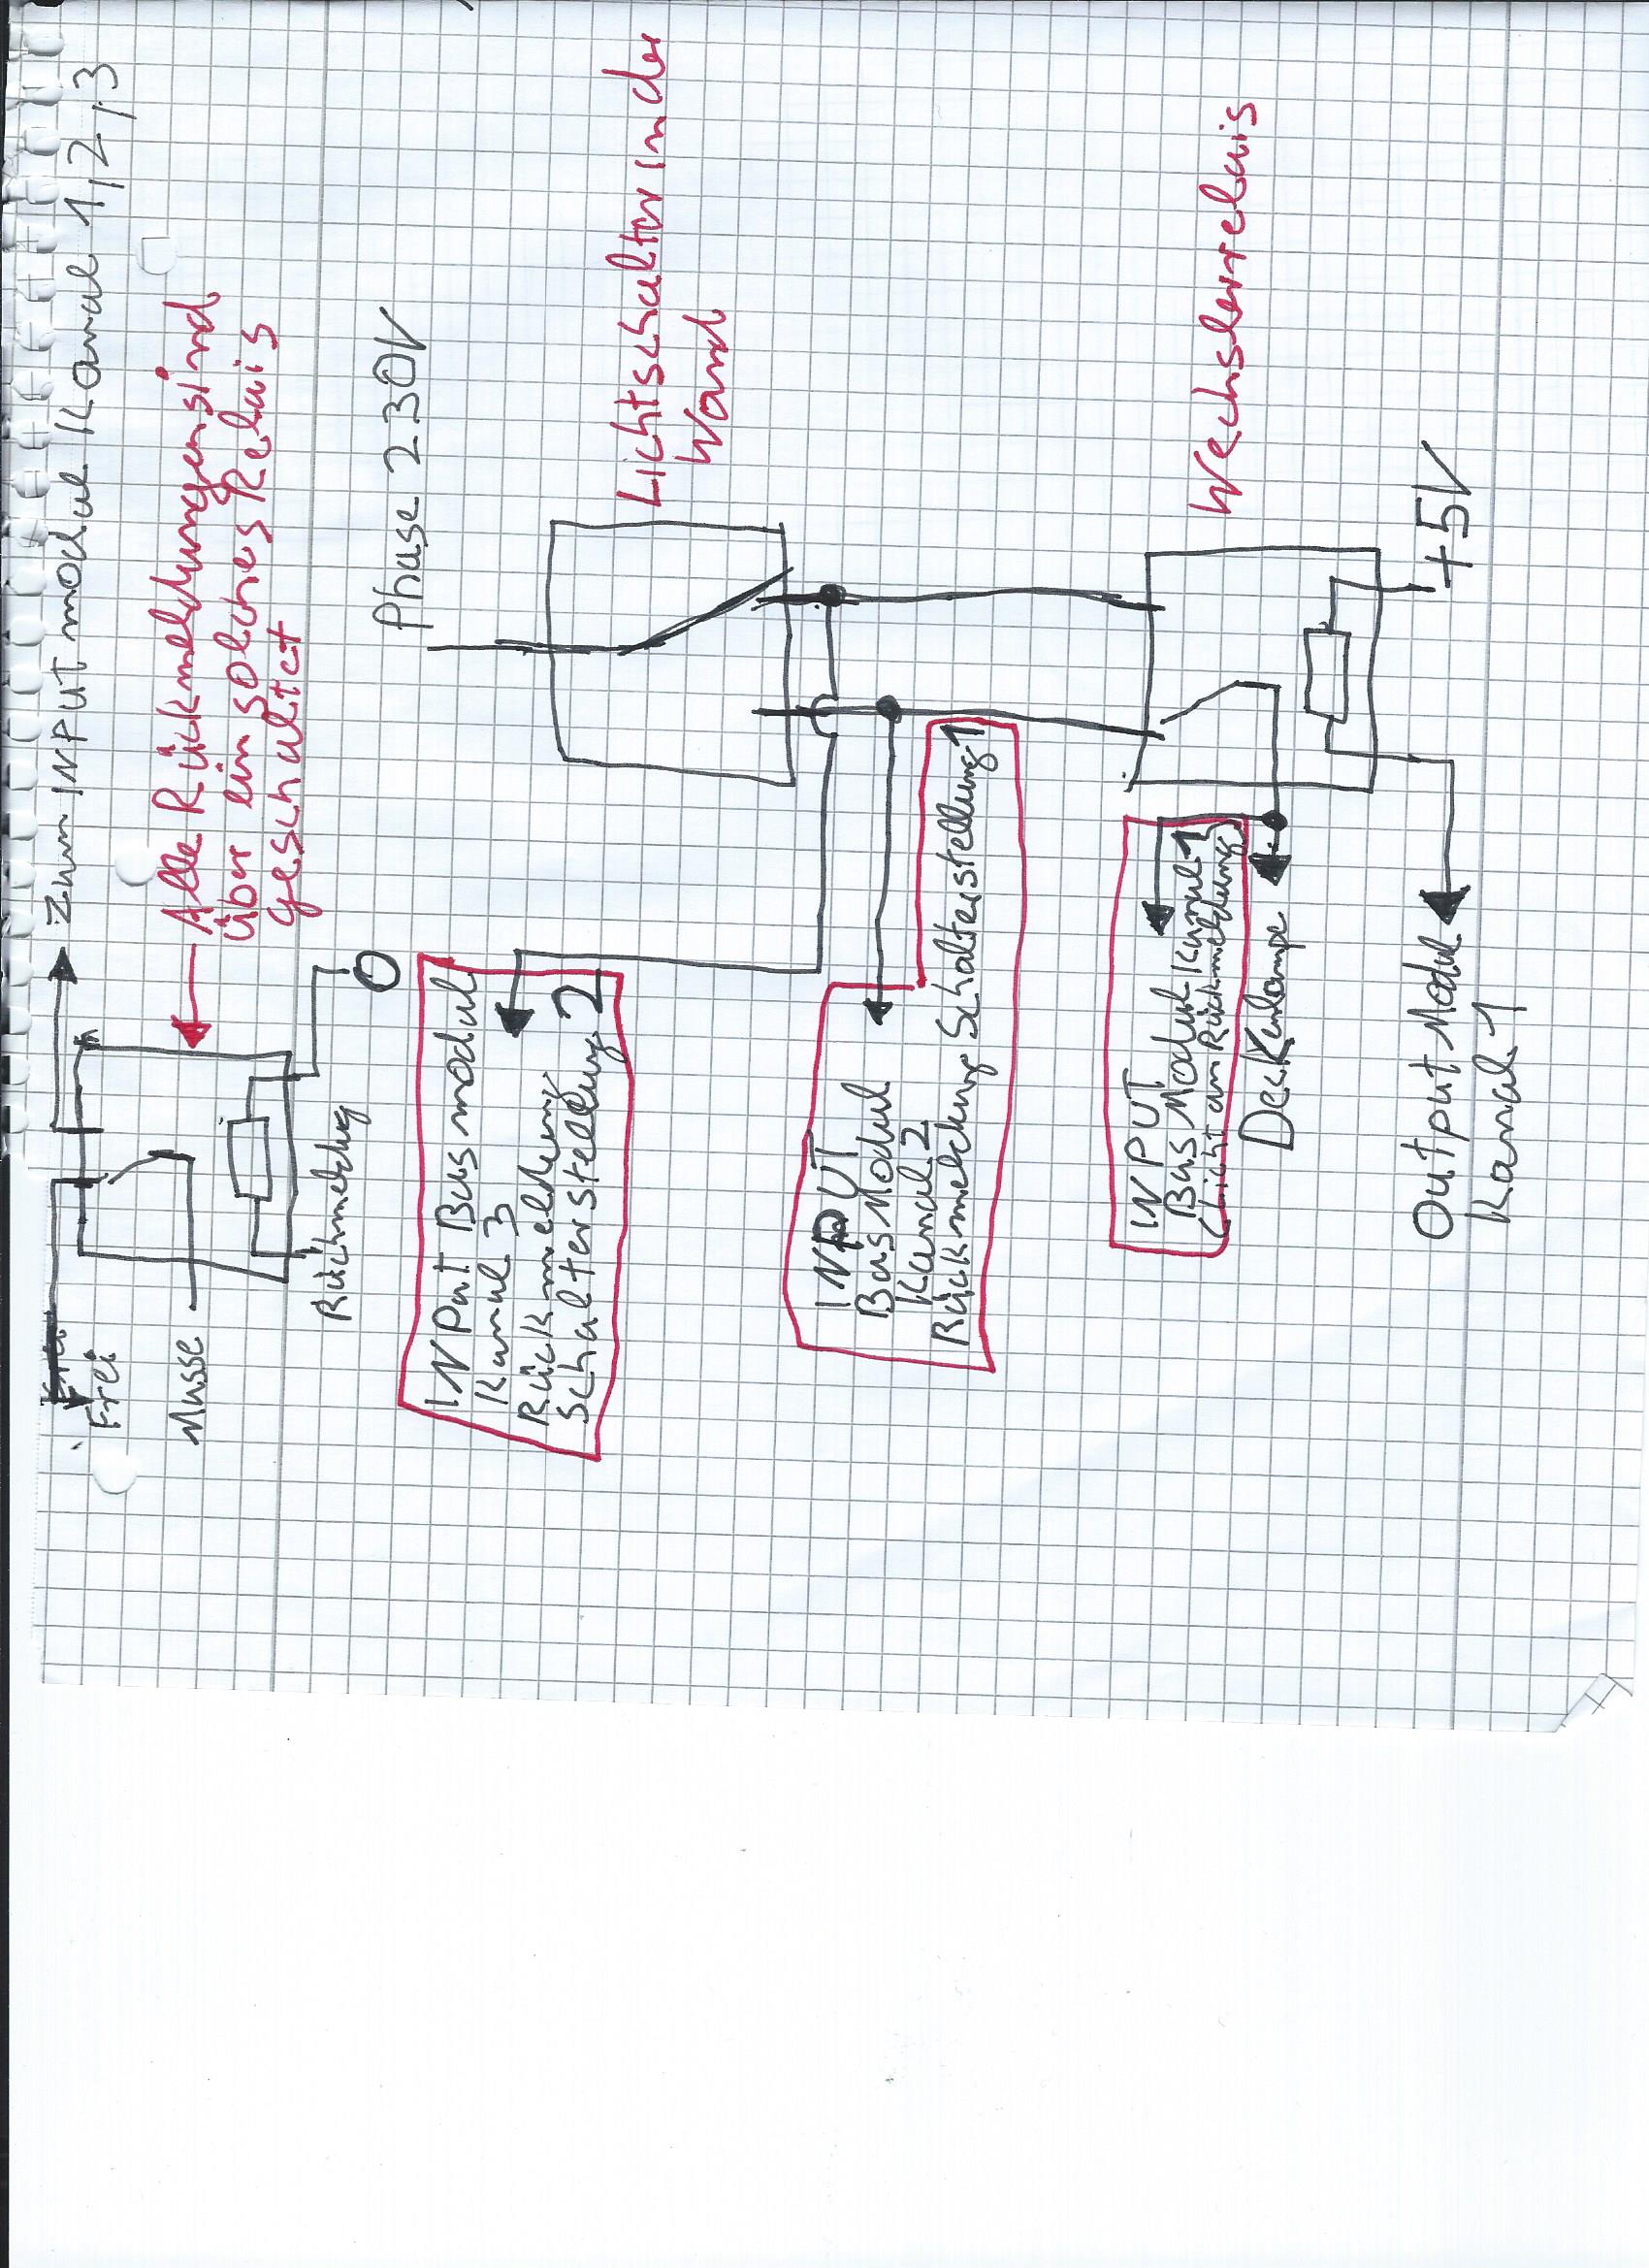 Zum INPUT modul Kanal 1,2,3
Alle Rückmeldungen sind
über ein solches Relais
geschaltet
Frei
Masse
Rückmeldug
0
Phase 230V
INPut Busmodul
Kanal 3
Rückmeldung
Schalterstellung 2
Lichtschalter in der
Wand
INPUT
Bus Modul
Kanal 2
Rückmeldung Schalterstellung 1
Wechslerrelais
INPUT
Bus Modul Kanal 1
(Licht an Rückmeldung)
Deckenlampe
+5V
Output Modul
Kanal 1